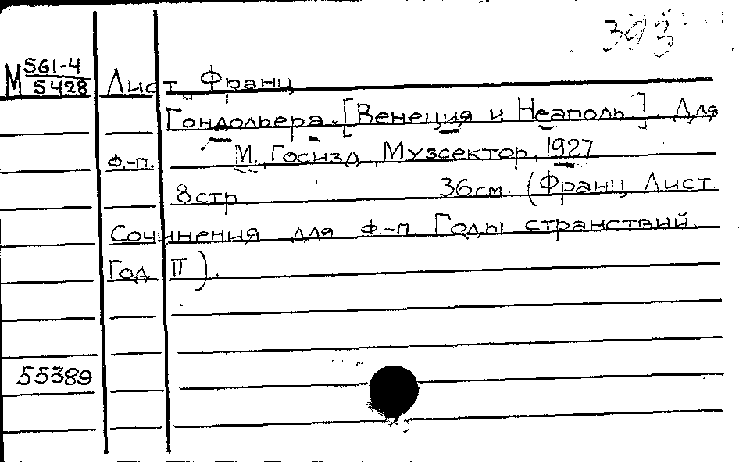 393
М 561-4
5428
Лист Франц
Гондольера. [Венеция и Неаполь]. Для
ф.-п. М. Госизд Музсектор, 1927
8стр 36см. (Франц Лист
Сочинения для ф-п Годы странствий.
Год II).
55389